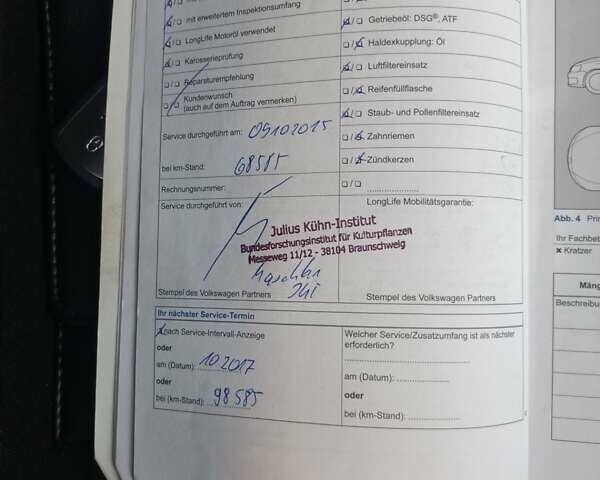 mit erweitertem Inspektionsumfang
LongLife Motoröl verwendet
Karosserieprüfung
Reparaturempfehlung
Kundenwunsch
(auch auf dem Auftrag vermerken)
Service durchgeführt am: 09102015
bei km-Stand: 68585
Rechnungsnummer:
Service durchgeführt von:
Stempel des Volkswagen Partners
Getriebeöl: DSG®, ATF
Haldexkupplung: Öl
Luftfiltereinsatz
Reifenfüllflasche
Staub- und Pollenfiltereinsatz
Zahnriemen
Zündkerzen
LongLife Mobilitätsgarantie:
Julius Kühn-Institut
Bundesforschungsinstitut für Kulturpflanzen
Messeweg 11/12 - 38104 Braunschweig
Stempel des Volkswagen Partners
Ihr nächster Service-Termin
nach Service-Intervall-Anzeige
oder
am (Datum): 10 2017
oder
bei (km-Stand): 98585
Welcher Service/Zusatzumfang ist als nächster
erforderlich?
am (Datum):
oder
bei (km-Stand):
Abb. 4
Ihr Fachbet
x Kratzer
Mäng
Beschreibu